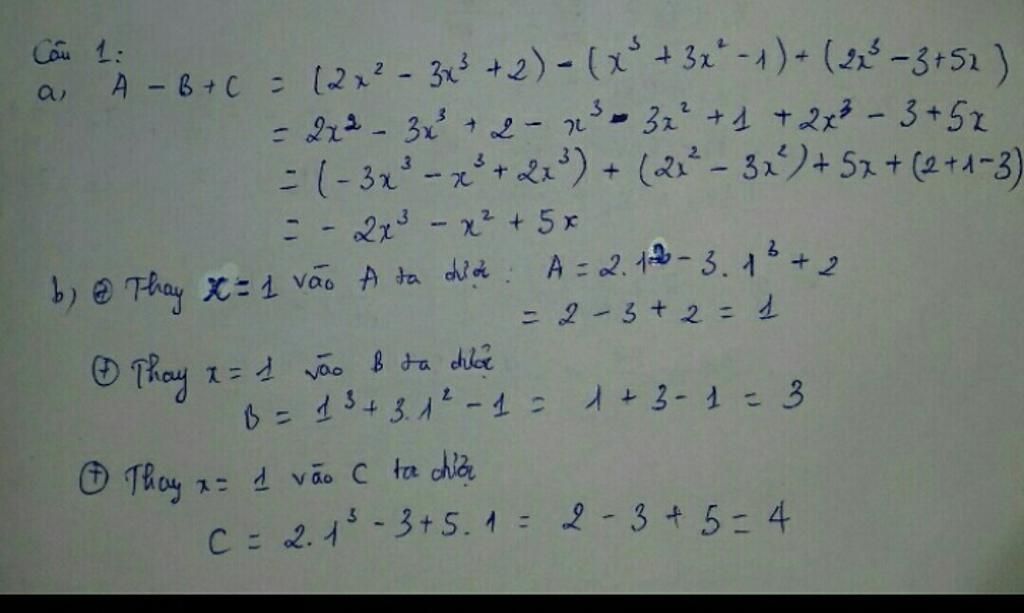 Câu 1:
a, A - B + C = (2x² - 3x³ + 2) - (x³ + 3x² - 1) + (2x³ - 3 + 5x)
= 2x² - 3x³ + 2 - x³ - 3x² + 1 + 2x³ - 3 + 5x
= (-3x³ - x³ + 2x³) + (2x² - 3x²) + 5x + (2 + 1 - 3)
= - 2x³ - x² + 5x
b) ⊕ Thay x = 1 vào A ta được : A = 2.1² - 3.1³ + 2
= 2 - 3 + 2 = 1
⊕ Thay x = 1 vào B ta được
B = 1³ + 3.1² - 1 = 1 + 3 - 1 = 3
⊕ Thay x = 1 vào C ta được
C = 2.1³ - 3 + 5.1 = 2 - 3 + 5 = 4